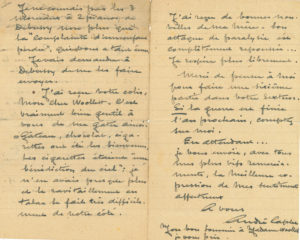 Je ne connais pas les 3
morceaux à 2 pianos de
Debussy non plus que
la "Complainte
perdu",
Je vais demander à
Debussy de me les faire
envoyer.
J'ai reçu votre colis,
Mon cher Woollett. C'est
vraiment bien gentil à
vous de me gâter ainsi
Gâteau, chocolat, ciga-
rettes ont été les bienvenus
Les cigarettes étaient une
bénédiction du ciel ; je
n'en avais presque plus
et le ravitaillement en
tabac se fait très diffici-
lement de notre côté.
J'ai reçu de bonnes nou-
velles de ma mère. Son
attaque de paralysie est
complètement
Je respire plus librement.
Merci de penser à moi
pour faire une sixième
partie dans votre sextuor.
Si la guerre est finie
l'an prochain, comptez
sur moi.
En attendant...
je vous envoie, avec tous
mes plus vifs remercie-
ments, la meilleure ex-
pression de mes sentiments
affectueux
A vous
André Caplet
Mon bon souvenir à Madame Woollett
je vous prie